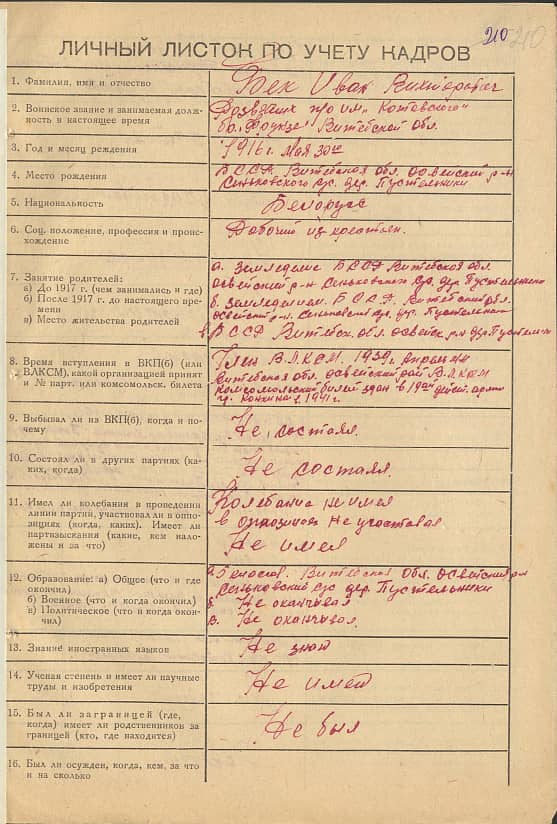 210 210
ЛИЧНЫЙ ЛИСТОК ПО УЧЕТУ КАДРОВ
1. Фамилия, имя и отчество
Бек Иван Викторович
2. Воинское звание и занимаемая долж-
ность в настоящее время
Разведчик п/о им. „Котовского"
бр. Фрунзе Витебской обл.
3. Год и месяц реждения
1916 г. мая 30
4. Место рождения
БССР. Витебская обл. Освейский р-н
Сеньковского с/с. дер. Пустельники
5. Национальность
Белорус
6. Соц. положение, профессия и проис-
хождение
Рабочий из крестьян.
7. Занятие родителей:
а) До 1917 г. (чем занимались и где)
б) После 1917 г. до настоящего вре-
мени
в) Место жительства родителей
а. Земледелие БССР Витебская обл
Освейский р-н Сеньковского с/с. дер Пустельники
б. земледелием. БССР. Витебской обл.
Освейский р-н. с/с. дер. Пустельники
в БССР Витебск. обл. Освейск. р-н дер. Пустельн
8. Время вступления в ВКП(б) (или
ВЛКСМ), какой организацией принят
и № парт. или комсомольск. билета
Член ВЛКСМ. 1939 г. апрель
Витебская обл. Освейский рай ВЛКСМ
комсомольский билет здан в 19
в 1941 г.
9. Выбывал ли из ВКП(б), когда и по-
чему
Не, состоял.
10. Состоял ли в других партиях (ка-
ких, когда)
Не состоял.
11. Имел ли колебания в проведении
линии партии, участвовал ли в оппо-
зициях (когда, каких). Имеет ли
партвзыскания (какие, кем нало-
жены и за что)
Колебание не имел
в опозициях не участвовал
Не имел
12. Образование: а) Общее (что и где
окончил)
б) Военное (что и когда окончил)
в) Политическое (что и когда окон-
чил)
а. 5 классов. Витебская обл. Освейский р-н
Сеньковский с/с дер. Пустельники
б. Не оканчивал
в. Не оканчивал.
13. Знание иностранных языков
Не знаю
14. Ученая степень и имеет ли научные
труды и изобретения
Не имею
15. Был ли заграницей (где,
когда) имеет ли родственников за
границей (кто, где находится)
Не был
16. Был ли осужден, когда, кем, за что
и на сколько